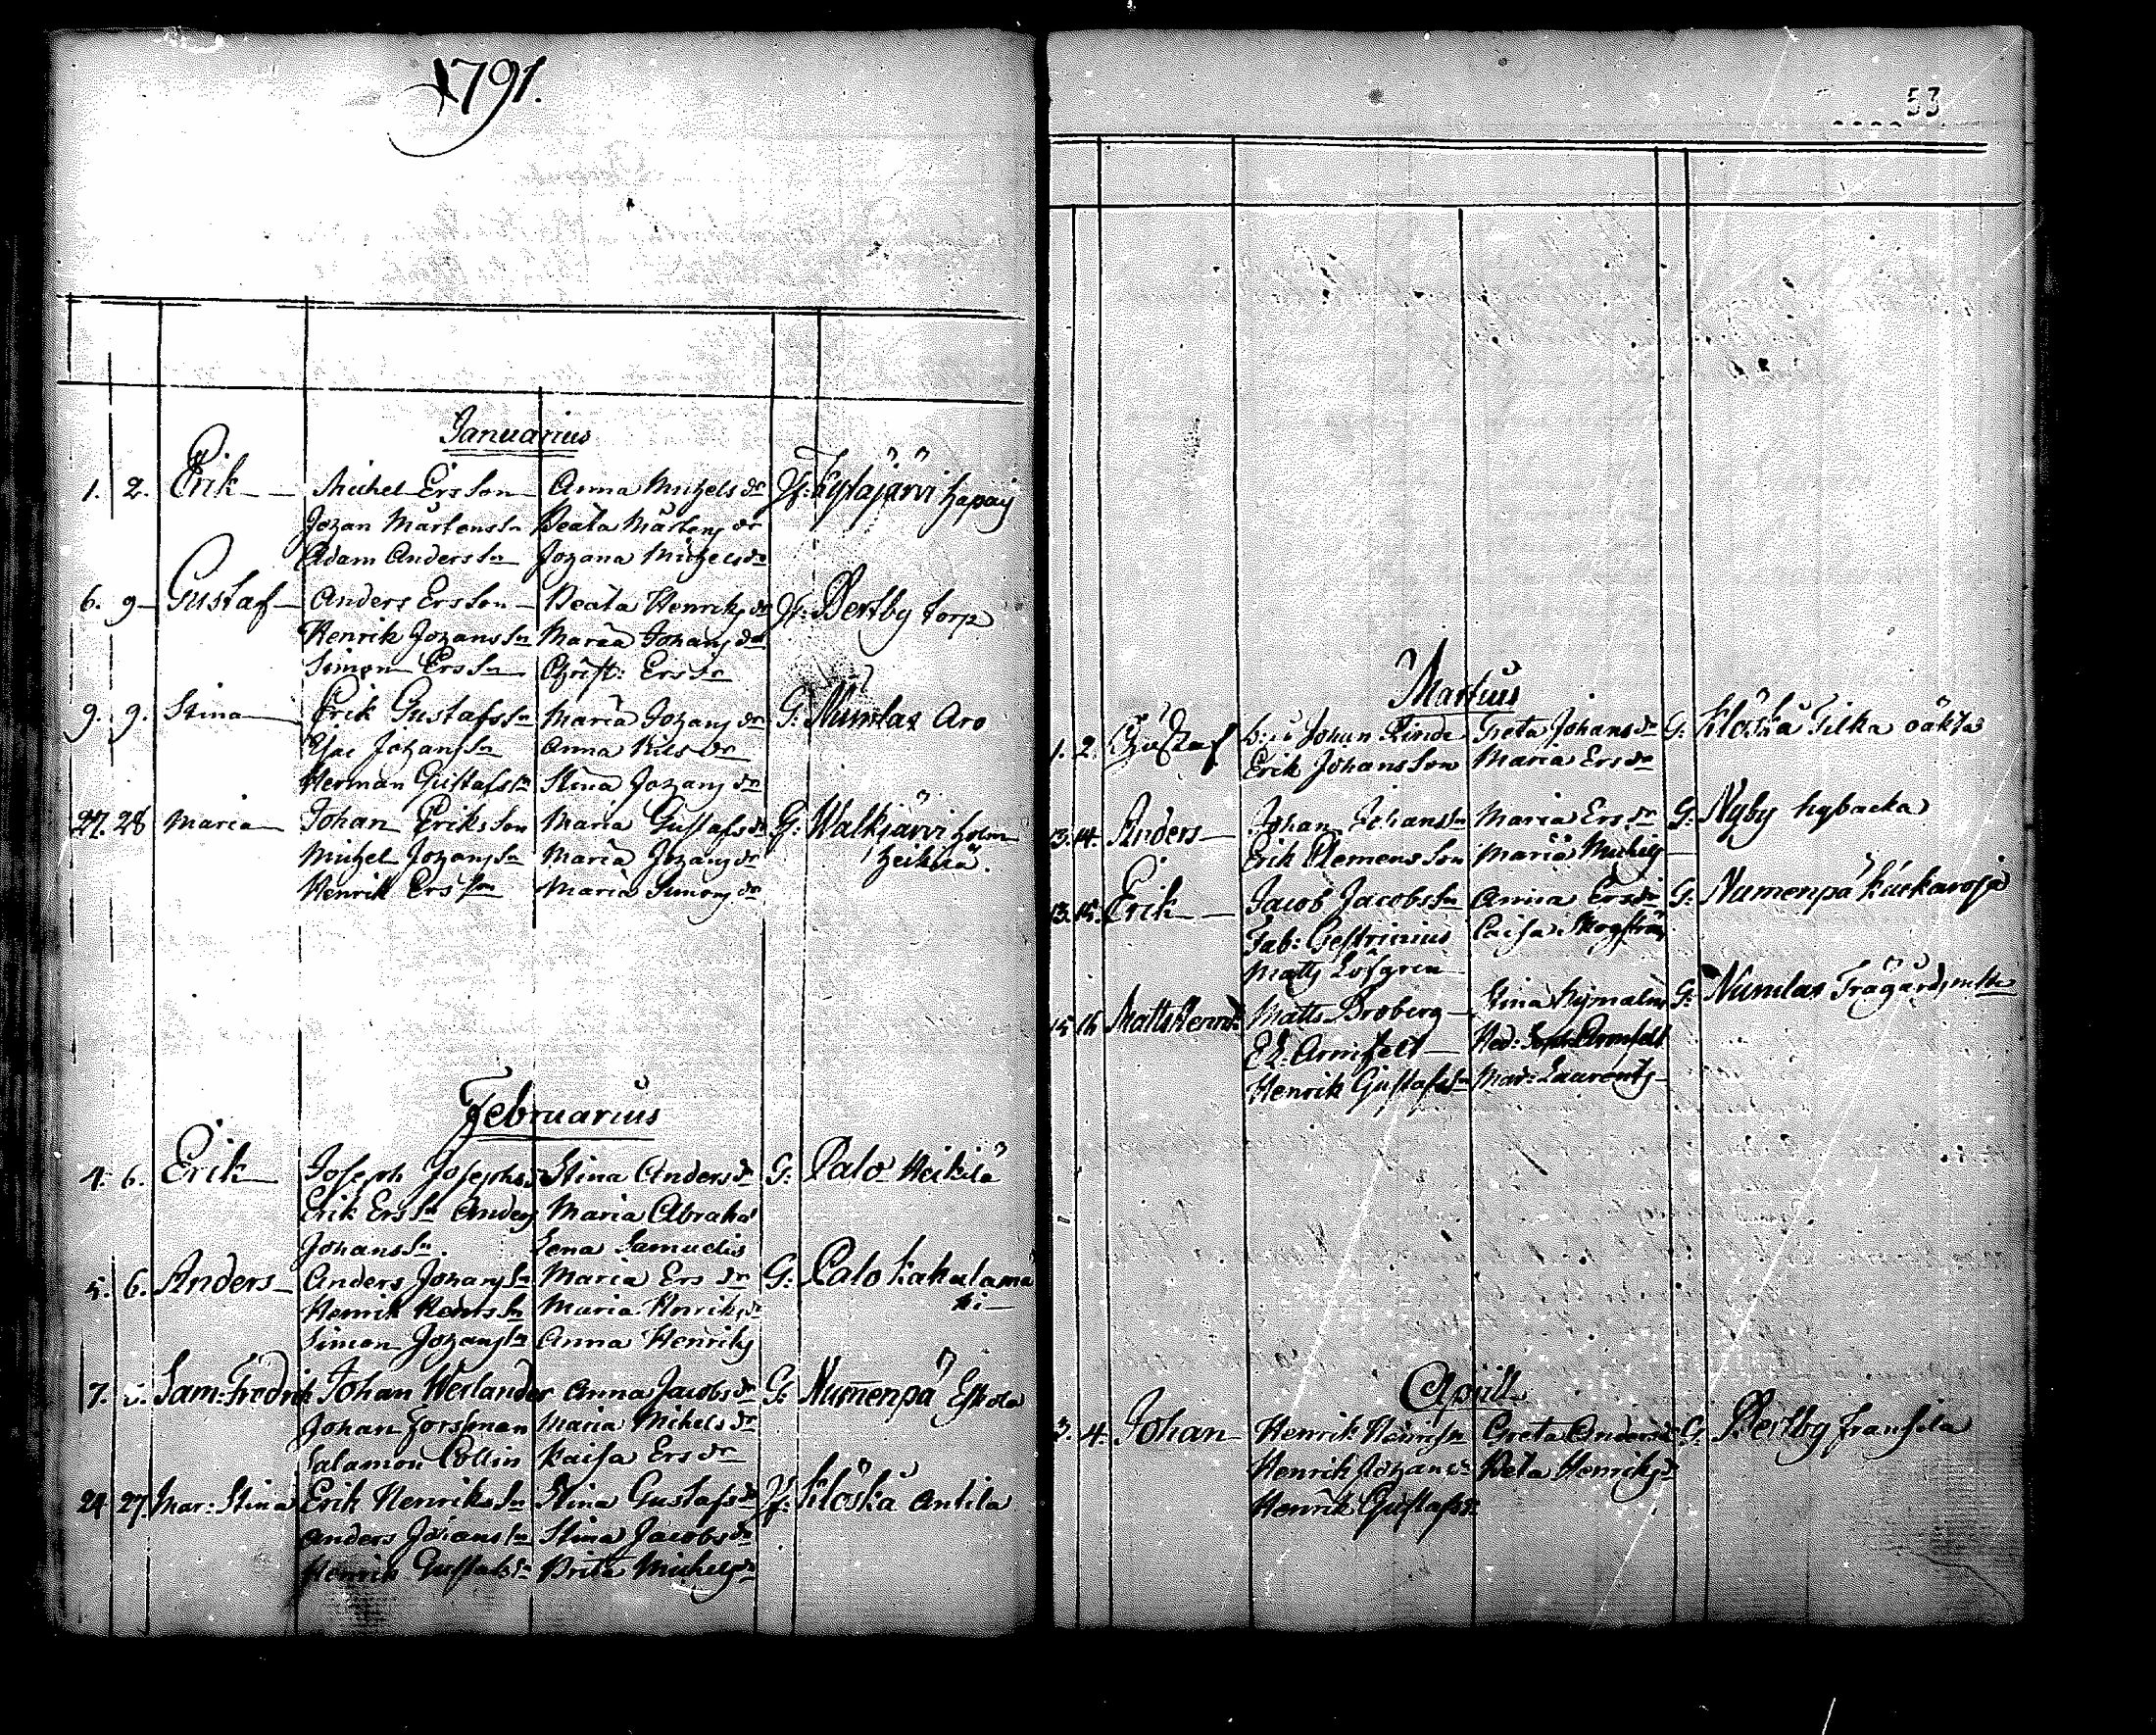 1791.
53
Januarius
1. 2. Erik Michel Ersson Anna Michels dr Kytäjärvi
Johan Mårtensn Beata Mårtens dr
Adam Anderssn Johana Michelsdr
6. 9 Gustaf Anders Ersson Beata Henriks dr Pertby torp
Henrik Johanssn Maria Johans dr
Simon Erssn Christ: Ersdr
9. 9. Stina Erik Gustafssn Maria Johans dr G: Numlax Aro
Johanssn Anna Nils dr
Herman Gustafssn Stina Johans dr
27. 28 Maria Johan Eriksson Maria Gustafsdr G: Walkjärvi
Michel Johanssn Maria Johansdr Heikkilä.
Henrik Ersson Maria Simons dr
Februarius
4. 6. Erik Joseph Josephs Stina Andersdr G: Palo Heikilä
Erik Erssn Anders Maria Abraha
Johanssn. Lena Samuelis
5. 6. Anders Anders Johanssn Maria Ers dr G: Palo Kakulamä
Henrik Henrssn Maria Henriksdr ki
Simon Johanssn Anna Henriks
7. Sam: Fredrik Johan Werlander Anna Jacobsdr G: Numenpä Eskola
Johan Forsman Maria Mikelsdr
Salamon Collin Kaisa Ersdr
24 27. Mar: Stina Erik Henrikssn Stina Gustafsdr Klöskå Antila
Anders Johanssn Stina Jacobsdr
Henrik Gustafssn Brita Michelsdr
Martius
1. 2. Gustaf Johan Linde Greta Johansdr G: Klöskå Tilka oäkta
Erik Johansson Maria Ersdr
13. 14. Anders Johan Johanssn Maria Ersdr G: Nyby
Erik Clemensson Maria Michels
13. 15. Erik Jacob Jacobssn Anna Ersdr G: Numenpä
Fab: Gestrinius Caisa
Matts Löfgren
15 16 Matts Henrik Matts Broberg Stina G: Numlax
Armfelt Hed: Armfelt
Henrik Gustafssn Mar: Laurents
Aprill
3. 4. Johan Henrik Henrikssn Greta Andersdr G: Pertby Fransila
Henrik Johanssn Beta Henriksdr
Henrik Gustafssn